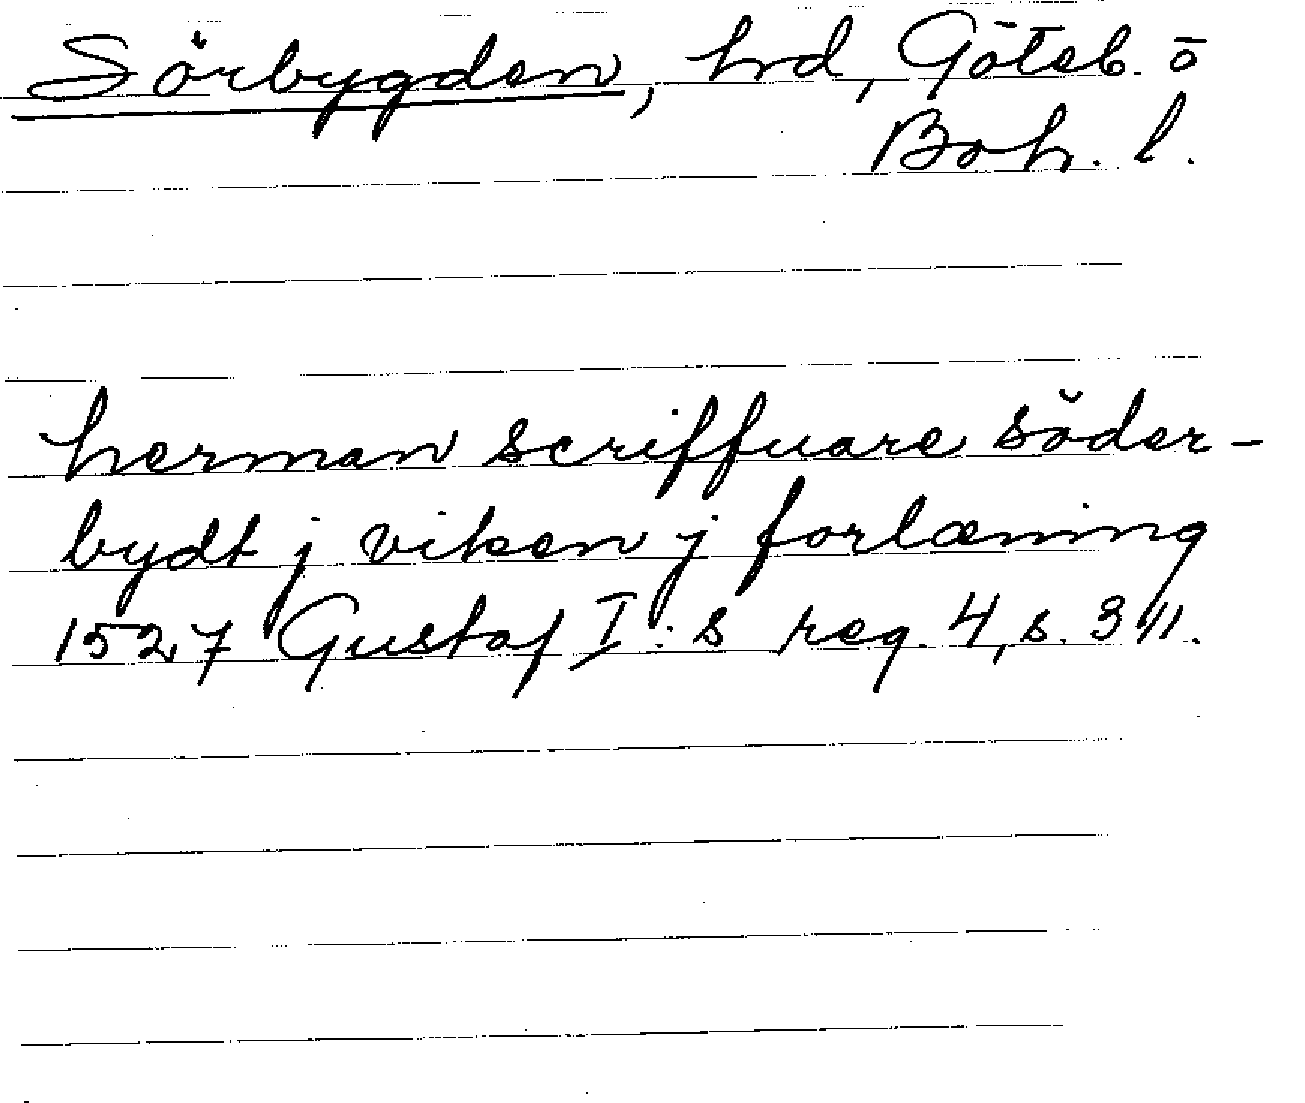 Sörbygden, hrd, Göteb. o
Boh. l.
herman scriffuare söder-
bydt j viken j forlæning
1527 Gustaf I:s reg. 4, s. 311.